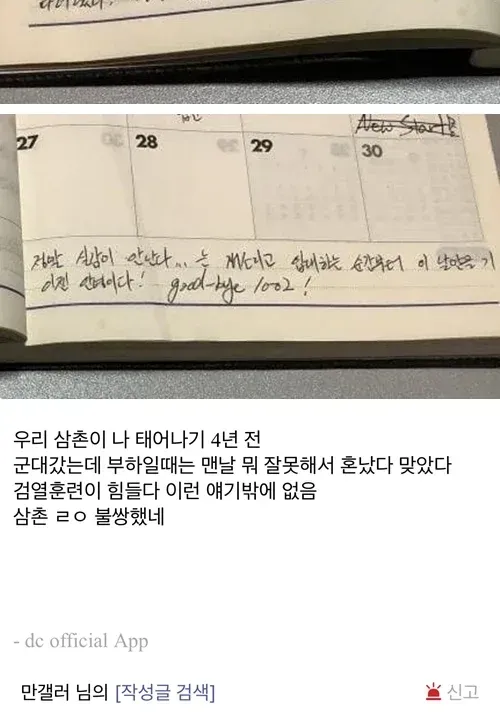 New Start!
27 28 29 30
정말 실감이 안난다... 눈 깜빡이고 입대하는 순간부터 이 날만을 기
good-bye 1002!
우리 삼촌이 나 태어나기 4년 전
군대갔는데 부하일때는 맨날 뭐 잘못해서 혼났다 맞았다
검열훈련이 힘들다 이런 얘기밖에 없음
삼촌 ㄹㅇ 불쌍했네
- dc official App
만갤러 님의 [작성글 검색]
신고